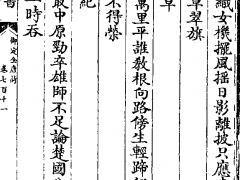 織女機擺風搖日影離披只應
卓翠旗
草
萬里平誰教根向路傍生輕蹄
不得榮
紀
取中原勁卒雄師不足論楚國
一時吞
御定全唐詩
卷七百十一